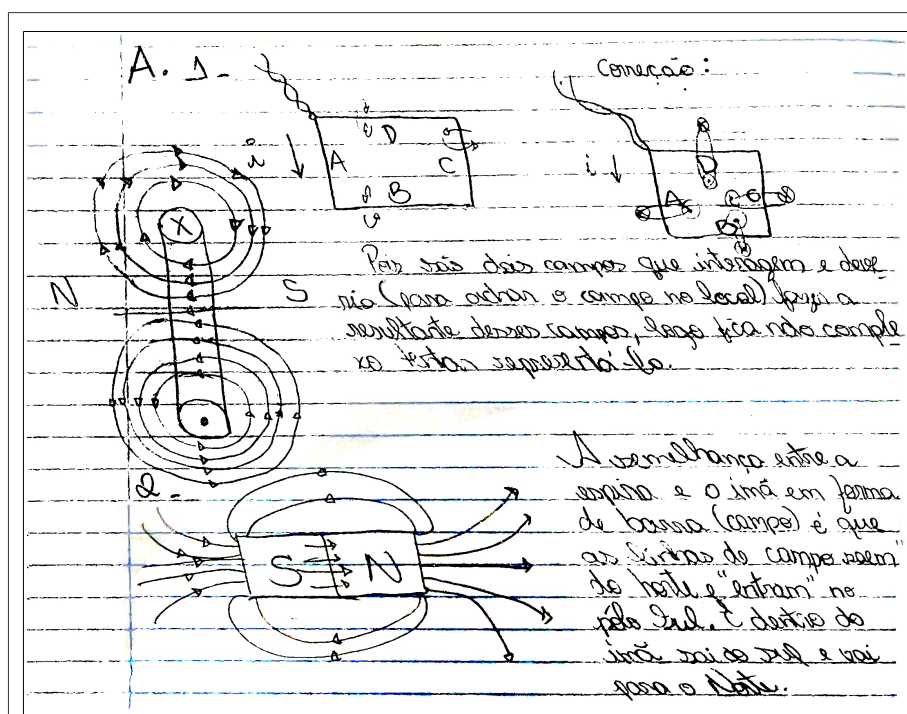 A. 1-
i
A
D
C
B
Correção:
i
A
D
C
B
X
N
S
Pois são dois campos que interagem e deve
ria (para achar o campo no local) fazer a
resultante desses campos, logo fica
xo tentar representá-lo.
2-
S
N
A semelhança entre a
espira e o imã em forma
de barra (campo) é que
as linhas de campo "saem"
do Norte e "entram" no
pólo Sul. E dentro do
imã sai do sul e vai
para o Norte.